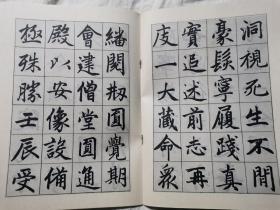 洞視死生不間
豪髮寧履踐真
實追述前志再
皮一大藏命眾
繙閱刱圓覺期
會建僧堂圓通
殿以安像設備
極殊勝壬辰受